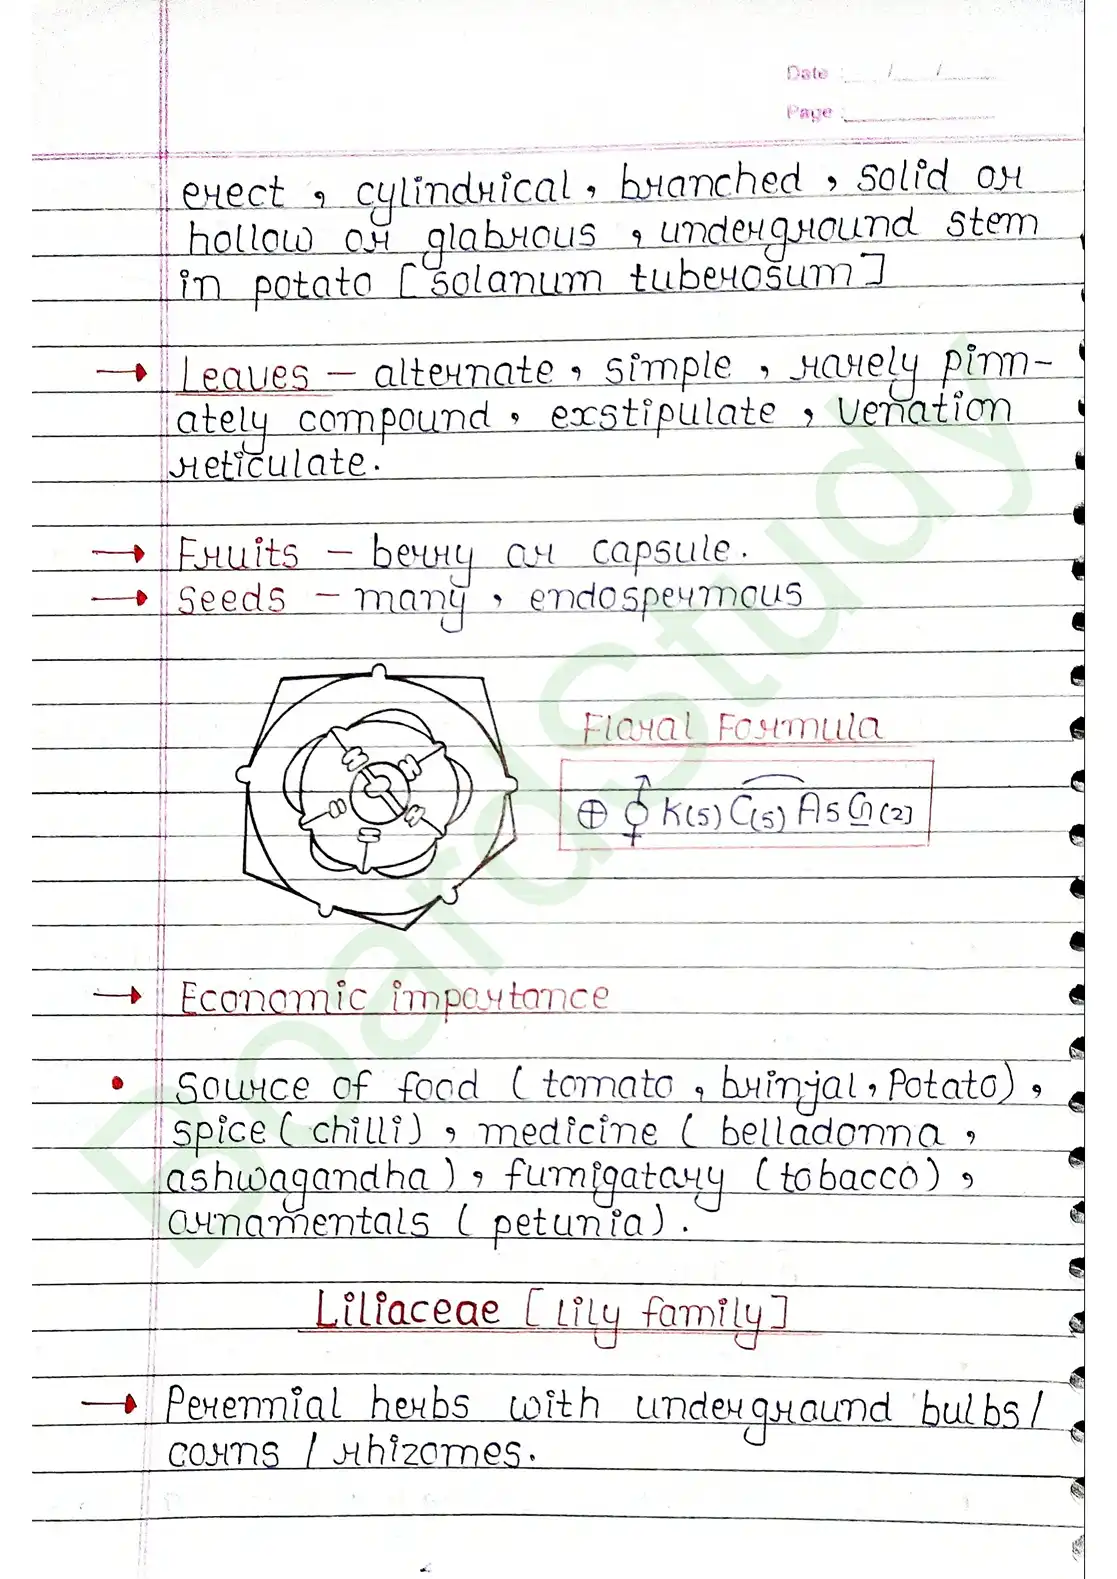 Date : / /
Page :
erect , cylindrical , branched , solid or
hollow or glabrous , underground stem
in potato [ solanum tuberosum ]
→ Leaves – alternate , simple , rarely pinn-
ately compound , exstipulate , venation
reticulate .
→ Fruits – berry or capsule .
→ Seeds – many , endospermous
Floral Formula
⊕ ⚥ K(5) C(5) A5 G(2)
→ Economic importance
• Source of food ( tomato , brinjal , Potato ) ,
spice ( chilli ) , medicine ( belladonna ,
ashwagandha ) , fumigatory ( tobacco ) ,
ornamentals ( petunia ) .
Liliaceae [ Lily family ]
→ Perennial herbs with underground bulbs /
corns / rhizomes .
BoardStudy